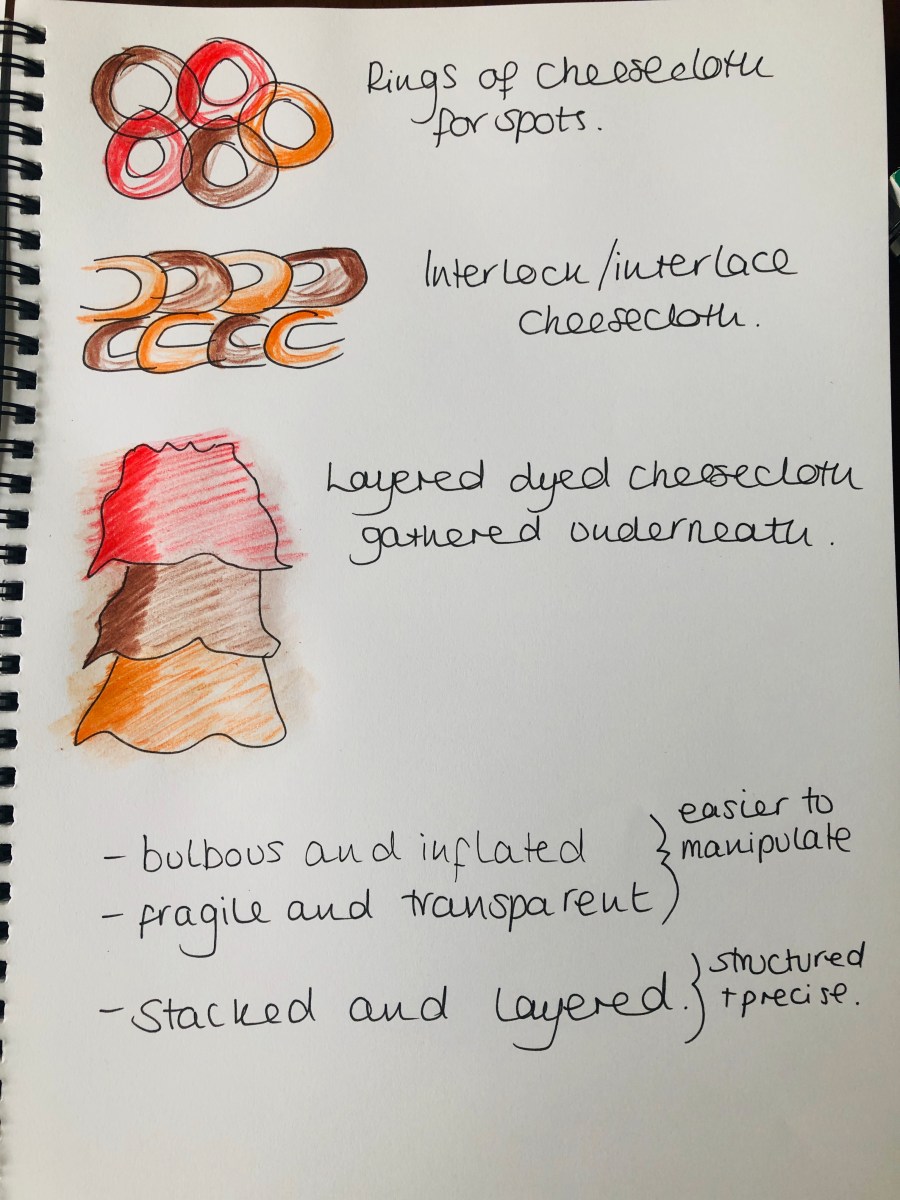 Rings of cheesecloth
for spots.
Interlock/interlace
cheesecloth.
Layered dyed cheesecloth
gathered ounderneath.
- bulbous and inflated
- fragile and transparent
easier to
manipulate
- Stacked and layered.
structured
+ precise.